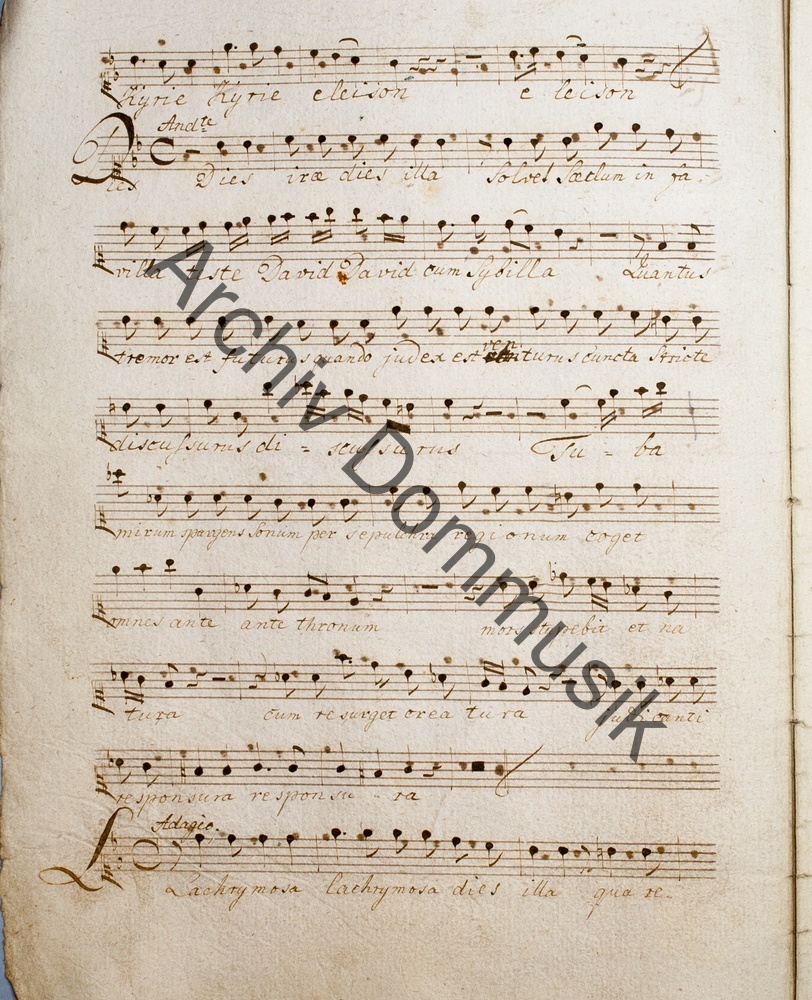 Kyrie Kyrie eleison e leison
Andte
Dies iræ dies illa solvet Sæclum in fa
villa teste David David cum Sybilla Quantus
tremor est futurus quando judex est ven turus cuncta stricte
discussurus di = scussurus Tu = ba
mirum spargens sonum per sepulchra regionum coget
omnes ante ante thronum mors stupebit et na
tura cum resurget creatura judicanti
responsura responsu - ra
Adagio.
Lachrymosa lachrymosa dies illa qua re-
Archiv Dommusik